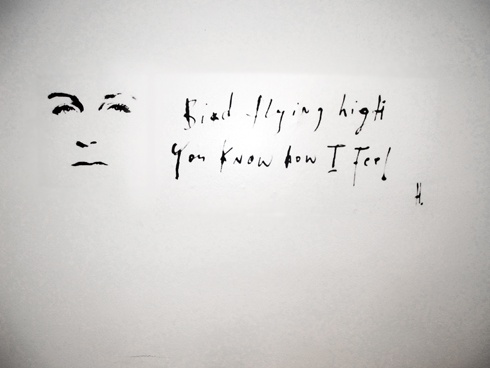 Bird flying high
You Know how I Feel
H.